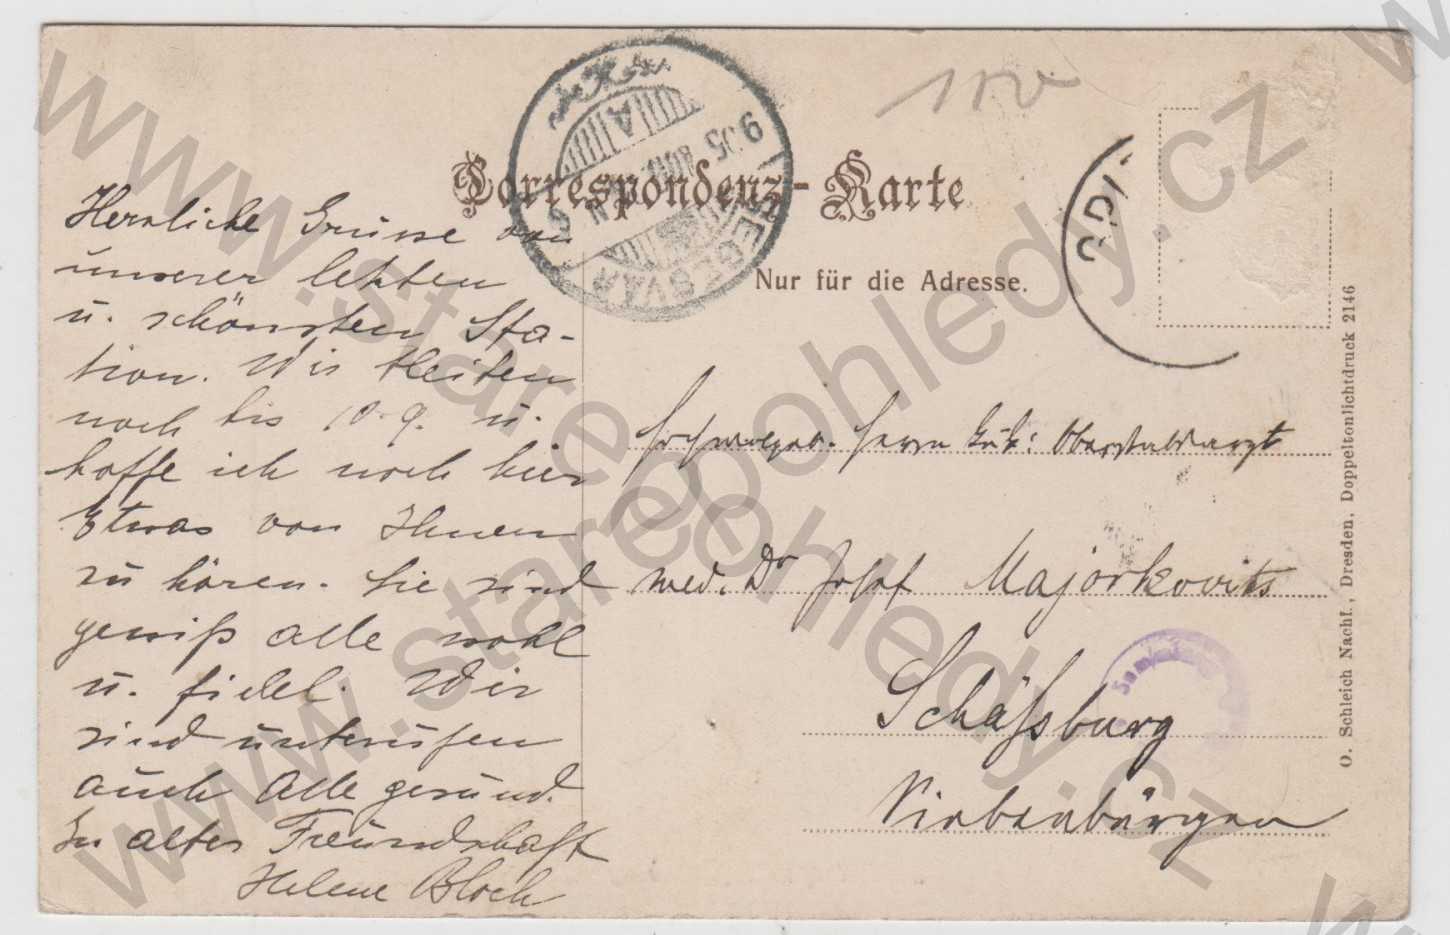 Correspondenz-Karte
Nur für die Adresse.
Herzliche Grüsse von
unserer letzten
u. schönsten Sta-
tion. Wir bleiben
noch bis 10.9. u.
hoffe ich noch hier
Etwas von Ihnen
zu hören. Sie sind
gewiß alle wohl
u. fidel. Wir
sind unterdessen
auch Alle gesund.
In alter Freundschaft
Helene Bloch
Herrn
med. Dr Josef Majorkovits
Schäßburg
Siebenbürgen
O. Schleich Nachf., Dresden, Doppeltonlichtdruck 2146
SEGESVÁR
A
www.starepohledy.cz
www.starepohledy.cz